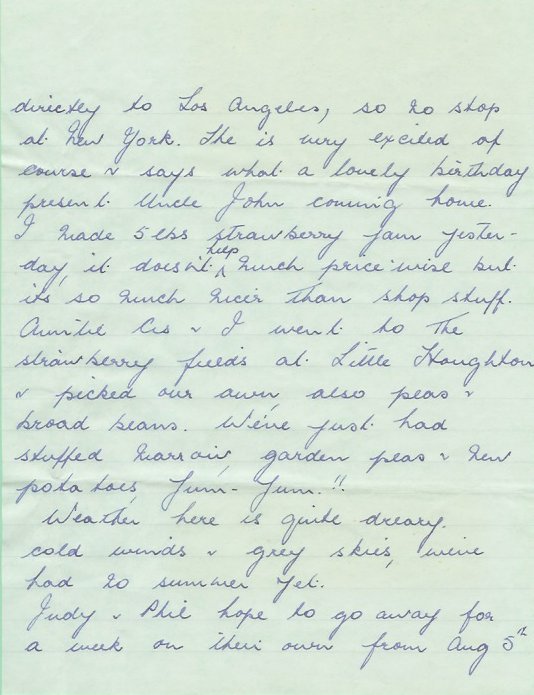 directly to Los Angeles, so no stop
at New York. She is very excited of
course & says what a lovely birthday
present Uncle John coming home.
I made 5 lbs strawberry jam yester-
day, it doesn't help much price wise but
its so much nicer than shop stuff.
Auntie Cis & I went to the
strawberry fields at Little Houghton
& picked our own, also peas &
broad beans. We've just had
stuffed marrow, garden peas & new
potatoes, Yum-Yum.!!
Weather here is quite dreary.
cold winds & grey skies, we've
had no summer yet.
Judy & Phil hope to go away for
a week on their own from Aug 5th